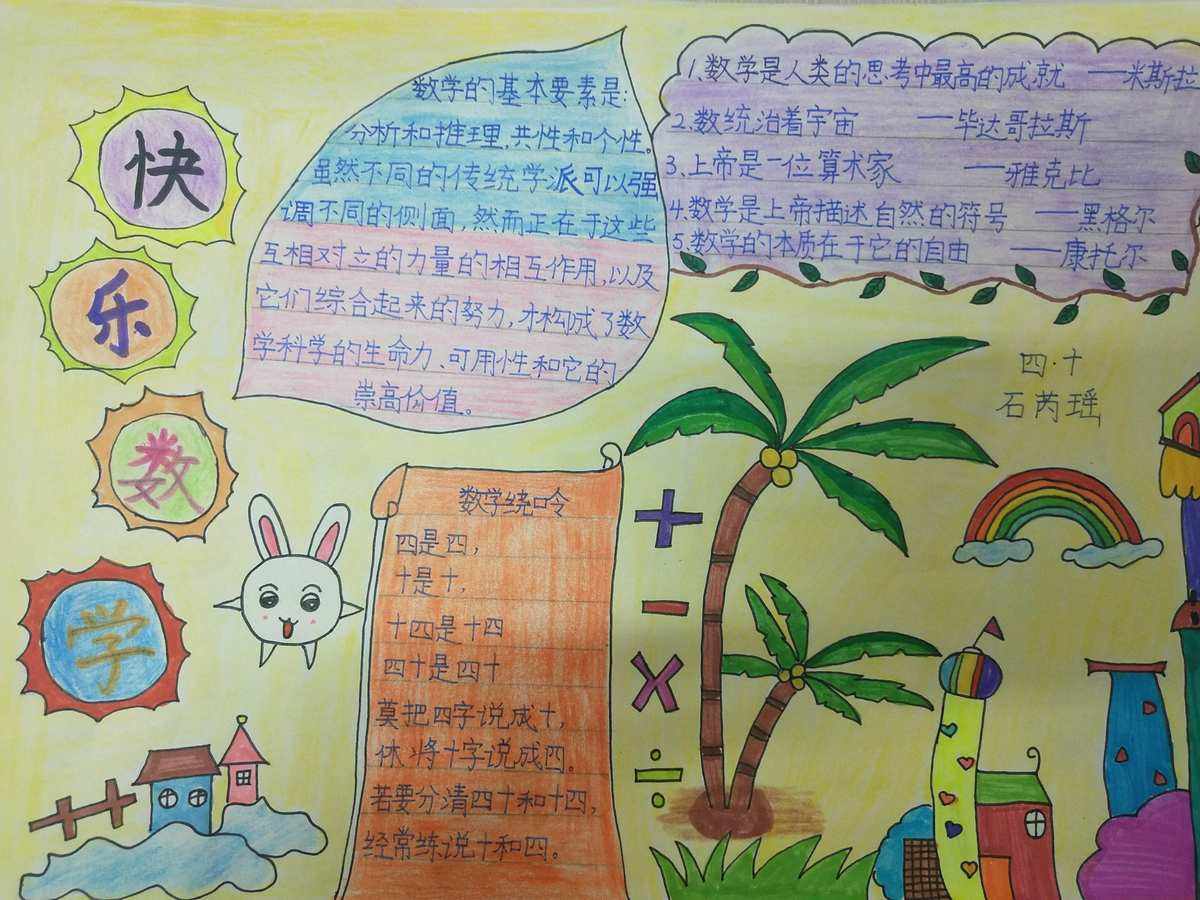 快
乐
数
学
数学的基本要素是:
分析和推理,共性和个性。
虽然不同的传统学派可以强
调不同的侧面,然而正在于这些
互相对立的力量的相互作用,以及
它们综合起来的努力,才构成了数
学科学的生命力、可用性和它的
崇高价值。
1.数学是人类的思考中最高的成就 ——米斯拉
2.数统治着宇宙 ——毕达哥拉斯
3、上帝是一位算术家 ——雅克比
4.数学是上帝描述自然的符号 ——黑格尔
5.数学的本质在于它的自由 ——康托尔
四·十
石芮瑶
数学绕口令
四是四,
十是十,
十四是十四
四十是四十
莫把四字说成十,
休将十字说成四。
若要分清四十和十四,
经常练说十和四。
+
-
×
÷